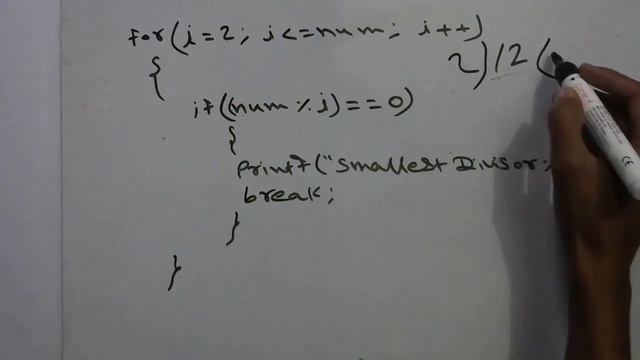 for(i=2; i<=num; i++)
{
2)12(
if((num%i)==0)
{
printf("Smallest Divisor:
break;
}
}